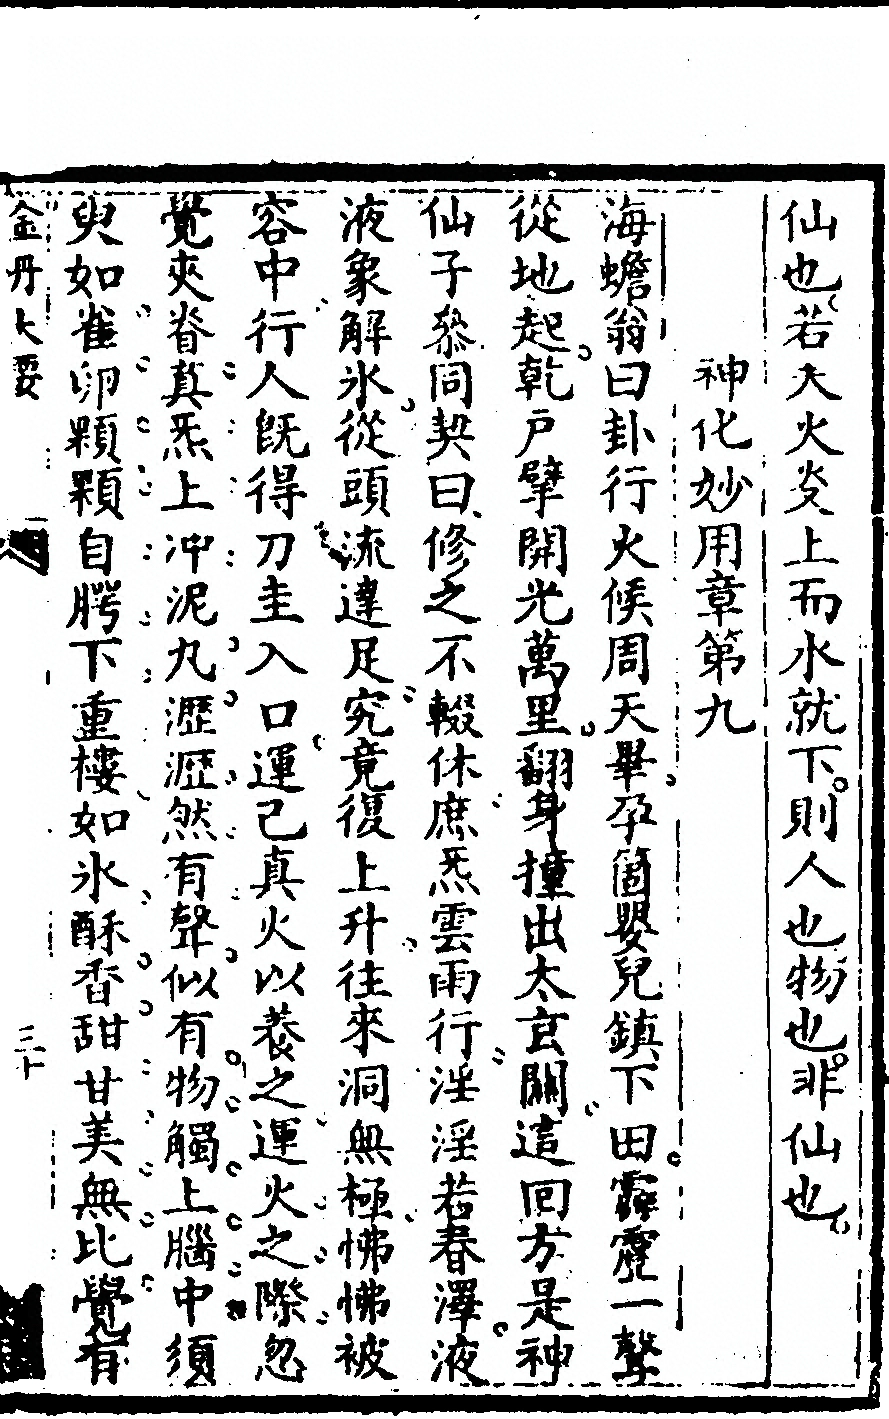 仙也若大火炎上而水就下則人也物也非仙也
神化妙用章第九
海蟾翁曰卦行火候周天畢孕箇嬰兒鎮下田霹靂一聲
從地起乾戶擘開光萬里翻身撞出太玄關這回方是神
仙子叅同契曰修之不輟休庶炁雲雨行淫淫若春澤液
液象解氷從頭流達足究竟復上升往來洞無極怫怫被
容中行人旣得刀圭入口運己真火以養之運火之際忽
覺夾脊真炁上冲泥丸瀝瀝然有聲似有物觸上腦中須
臾如雀卵顆顆自腭下重樓如氷酥香甜甘美無比覺有
金丹大要
三十